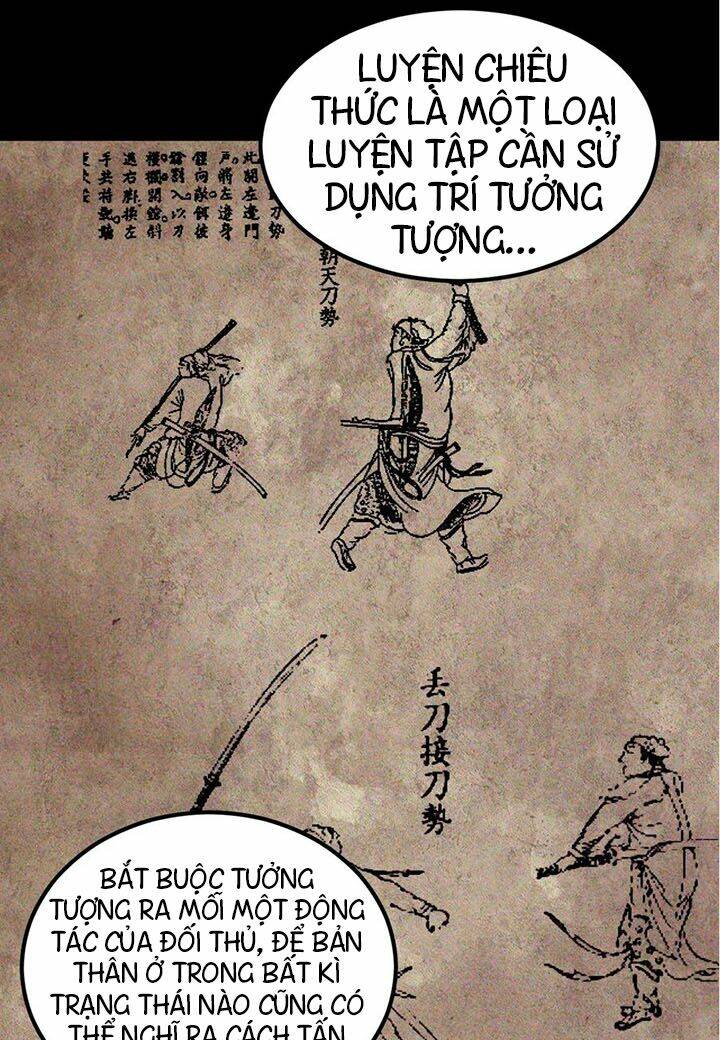 LUYỆN CHIÊU
THỨC LÀ MỘT LOẠI
LUYỆN TẬP CẦN SỬ
DỤNG TRÍ TƯỞNG
TƯỢNG...
刀勢
此開左邊門
戶將左邊身
朝天刀勢
丢刀接刀勢
BẮT BUỘC TƯỞNG
TƯỢNG RA MỖI MỘT ĐỘNG
TÁC CỦA ĐỐI THỦ, ĐỂ BẢN
THÂN Ở TRONG BẤT KÌ
TRẠNG THÁI NÀO CŨNG CÓ
THỂ NGHĨ RA CÁCH TẤN